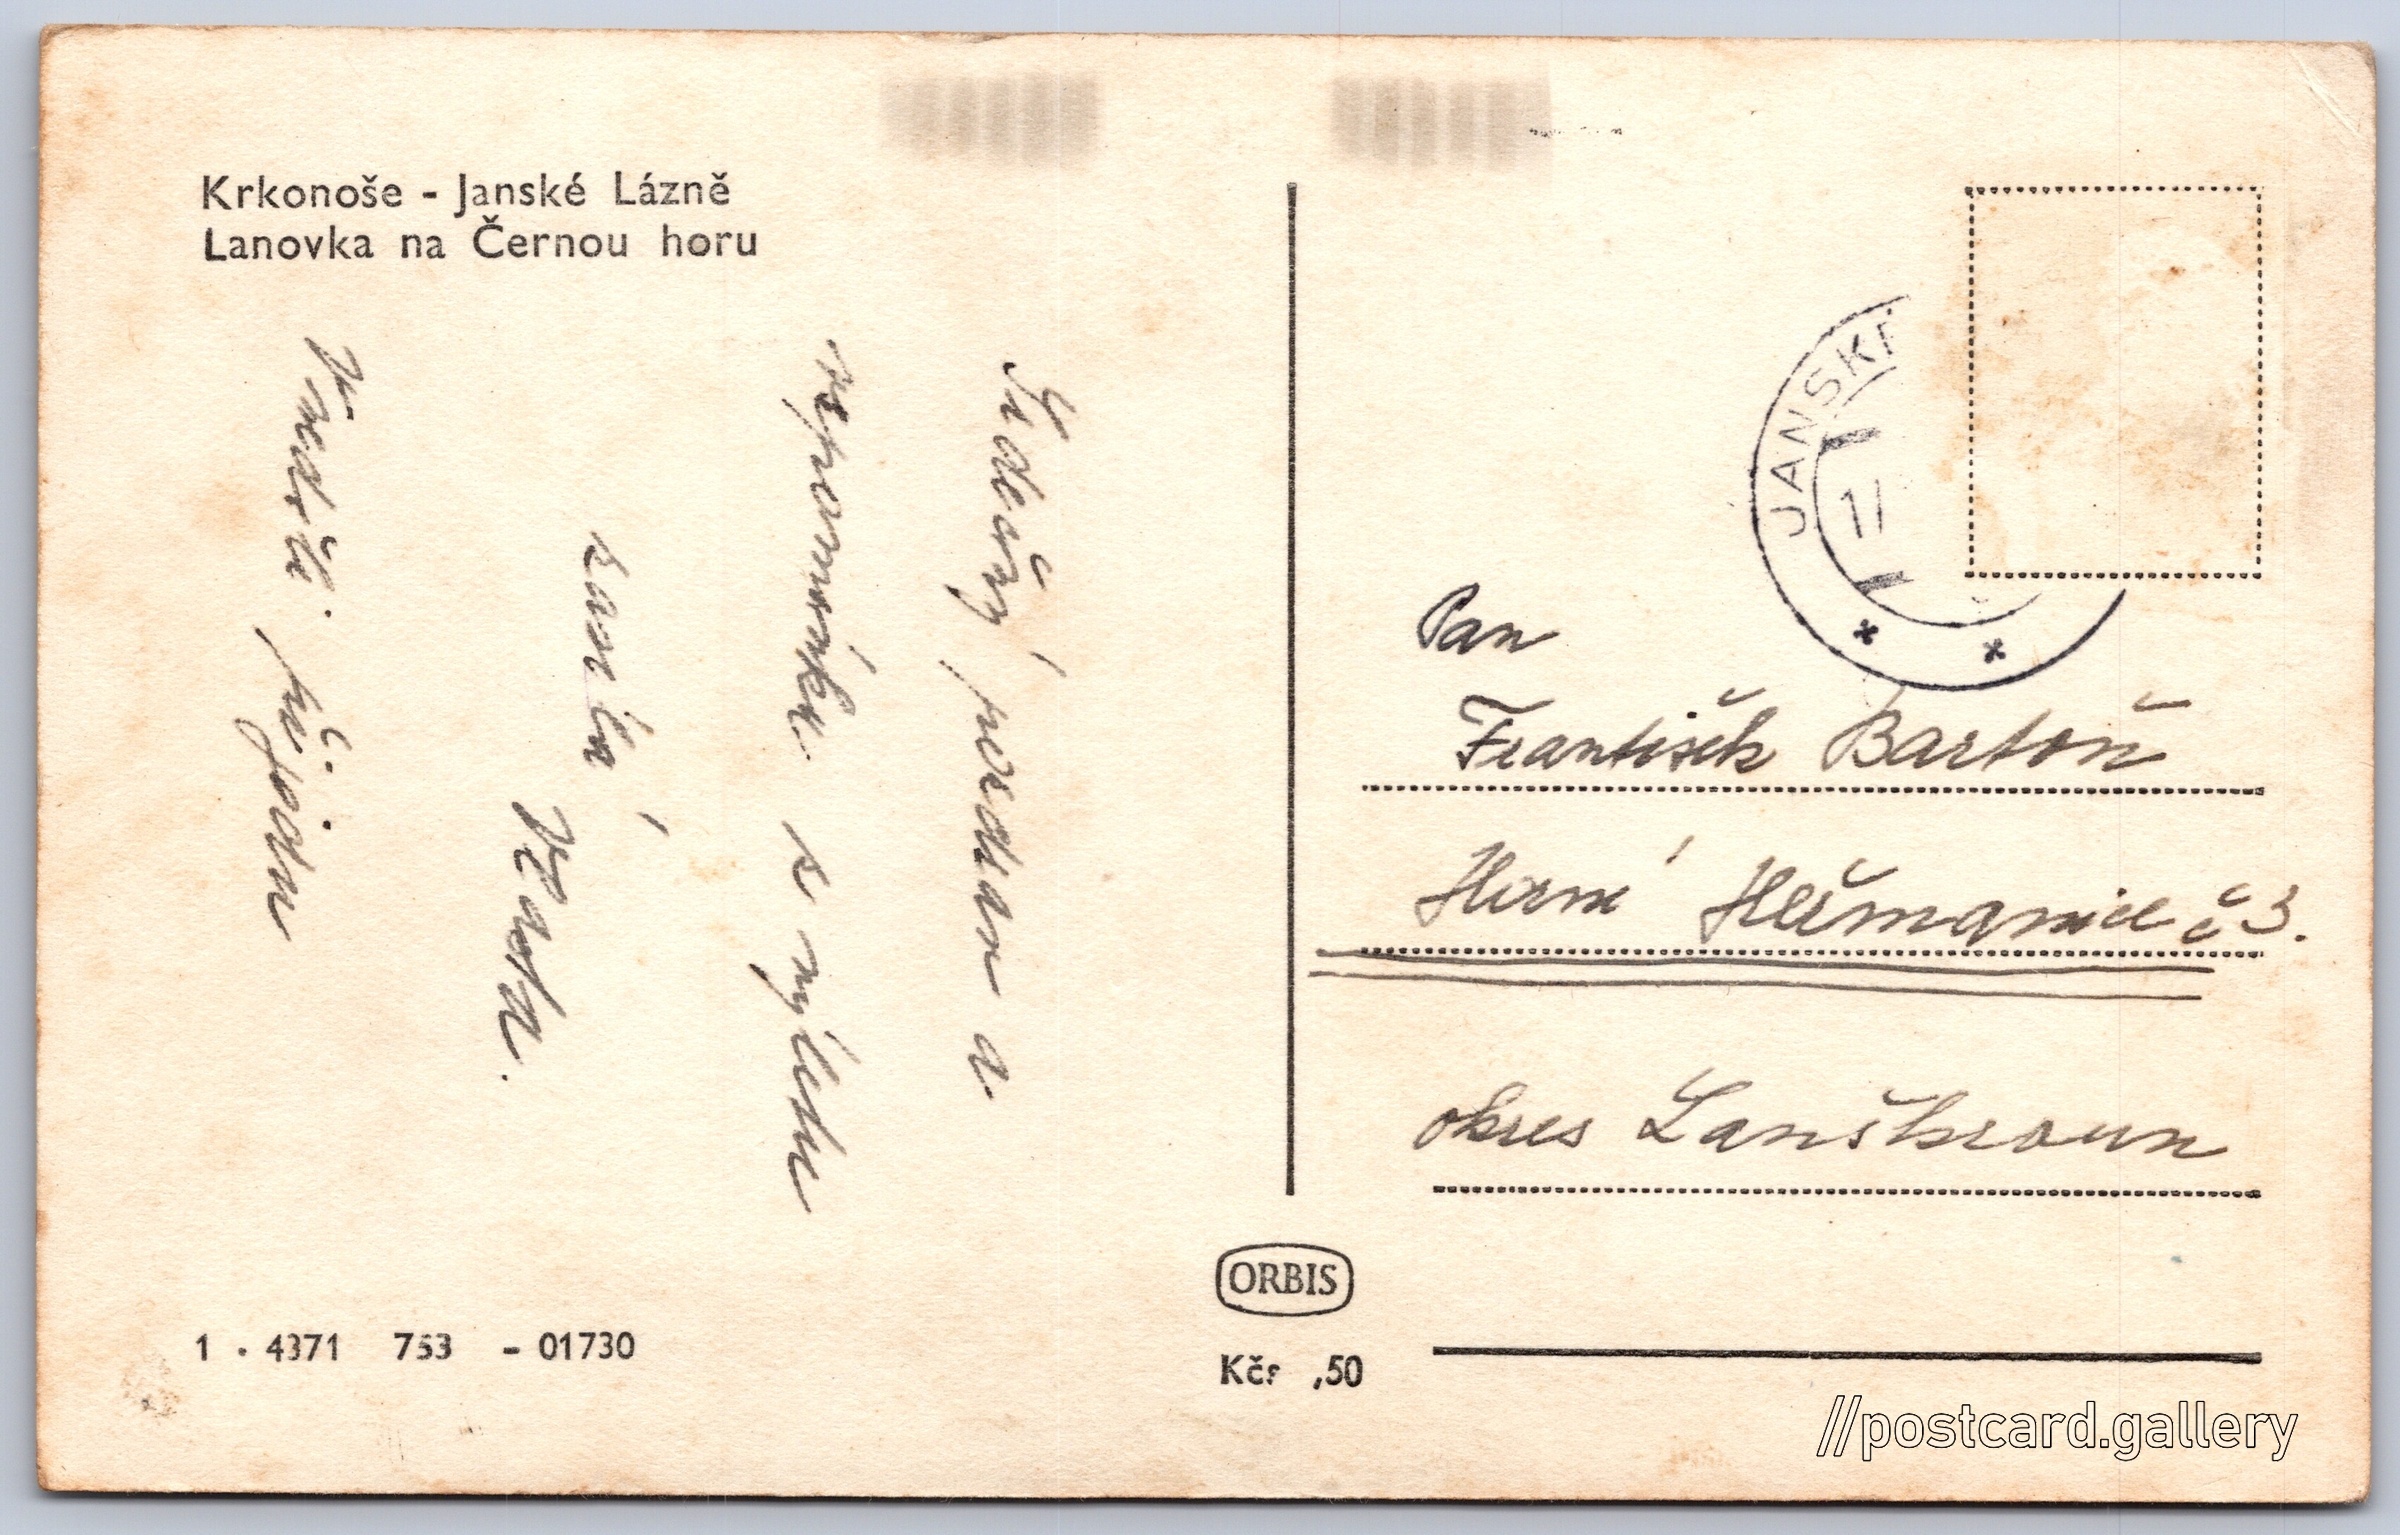 Krkonoše - Janské Lázně
Lanovka na Černou horu
Srdečný pozdrav a
vzpomínku. s výletu
zasílá
Vlasta.
V neděli přijedu
JANSKÉ
1/
Pan
František Bartoň
Horní Heřmanice č 3.
okres Lanškroun
ORBIS
Kčs ,50
1 · 4371 753 - 01730
//postcard.gallery